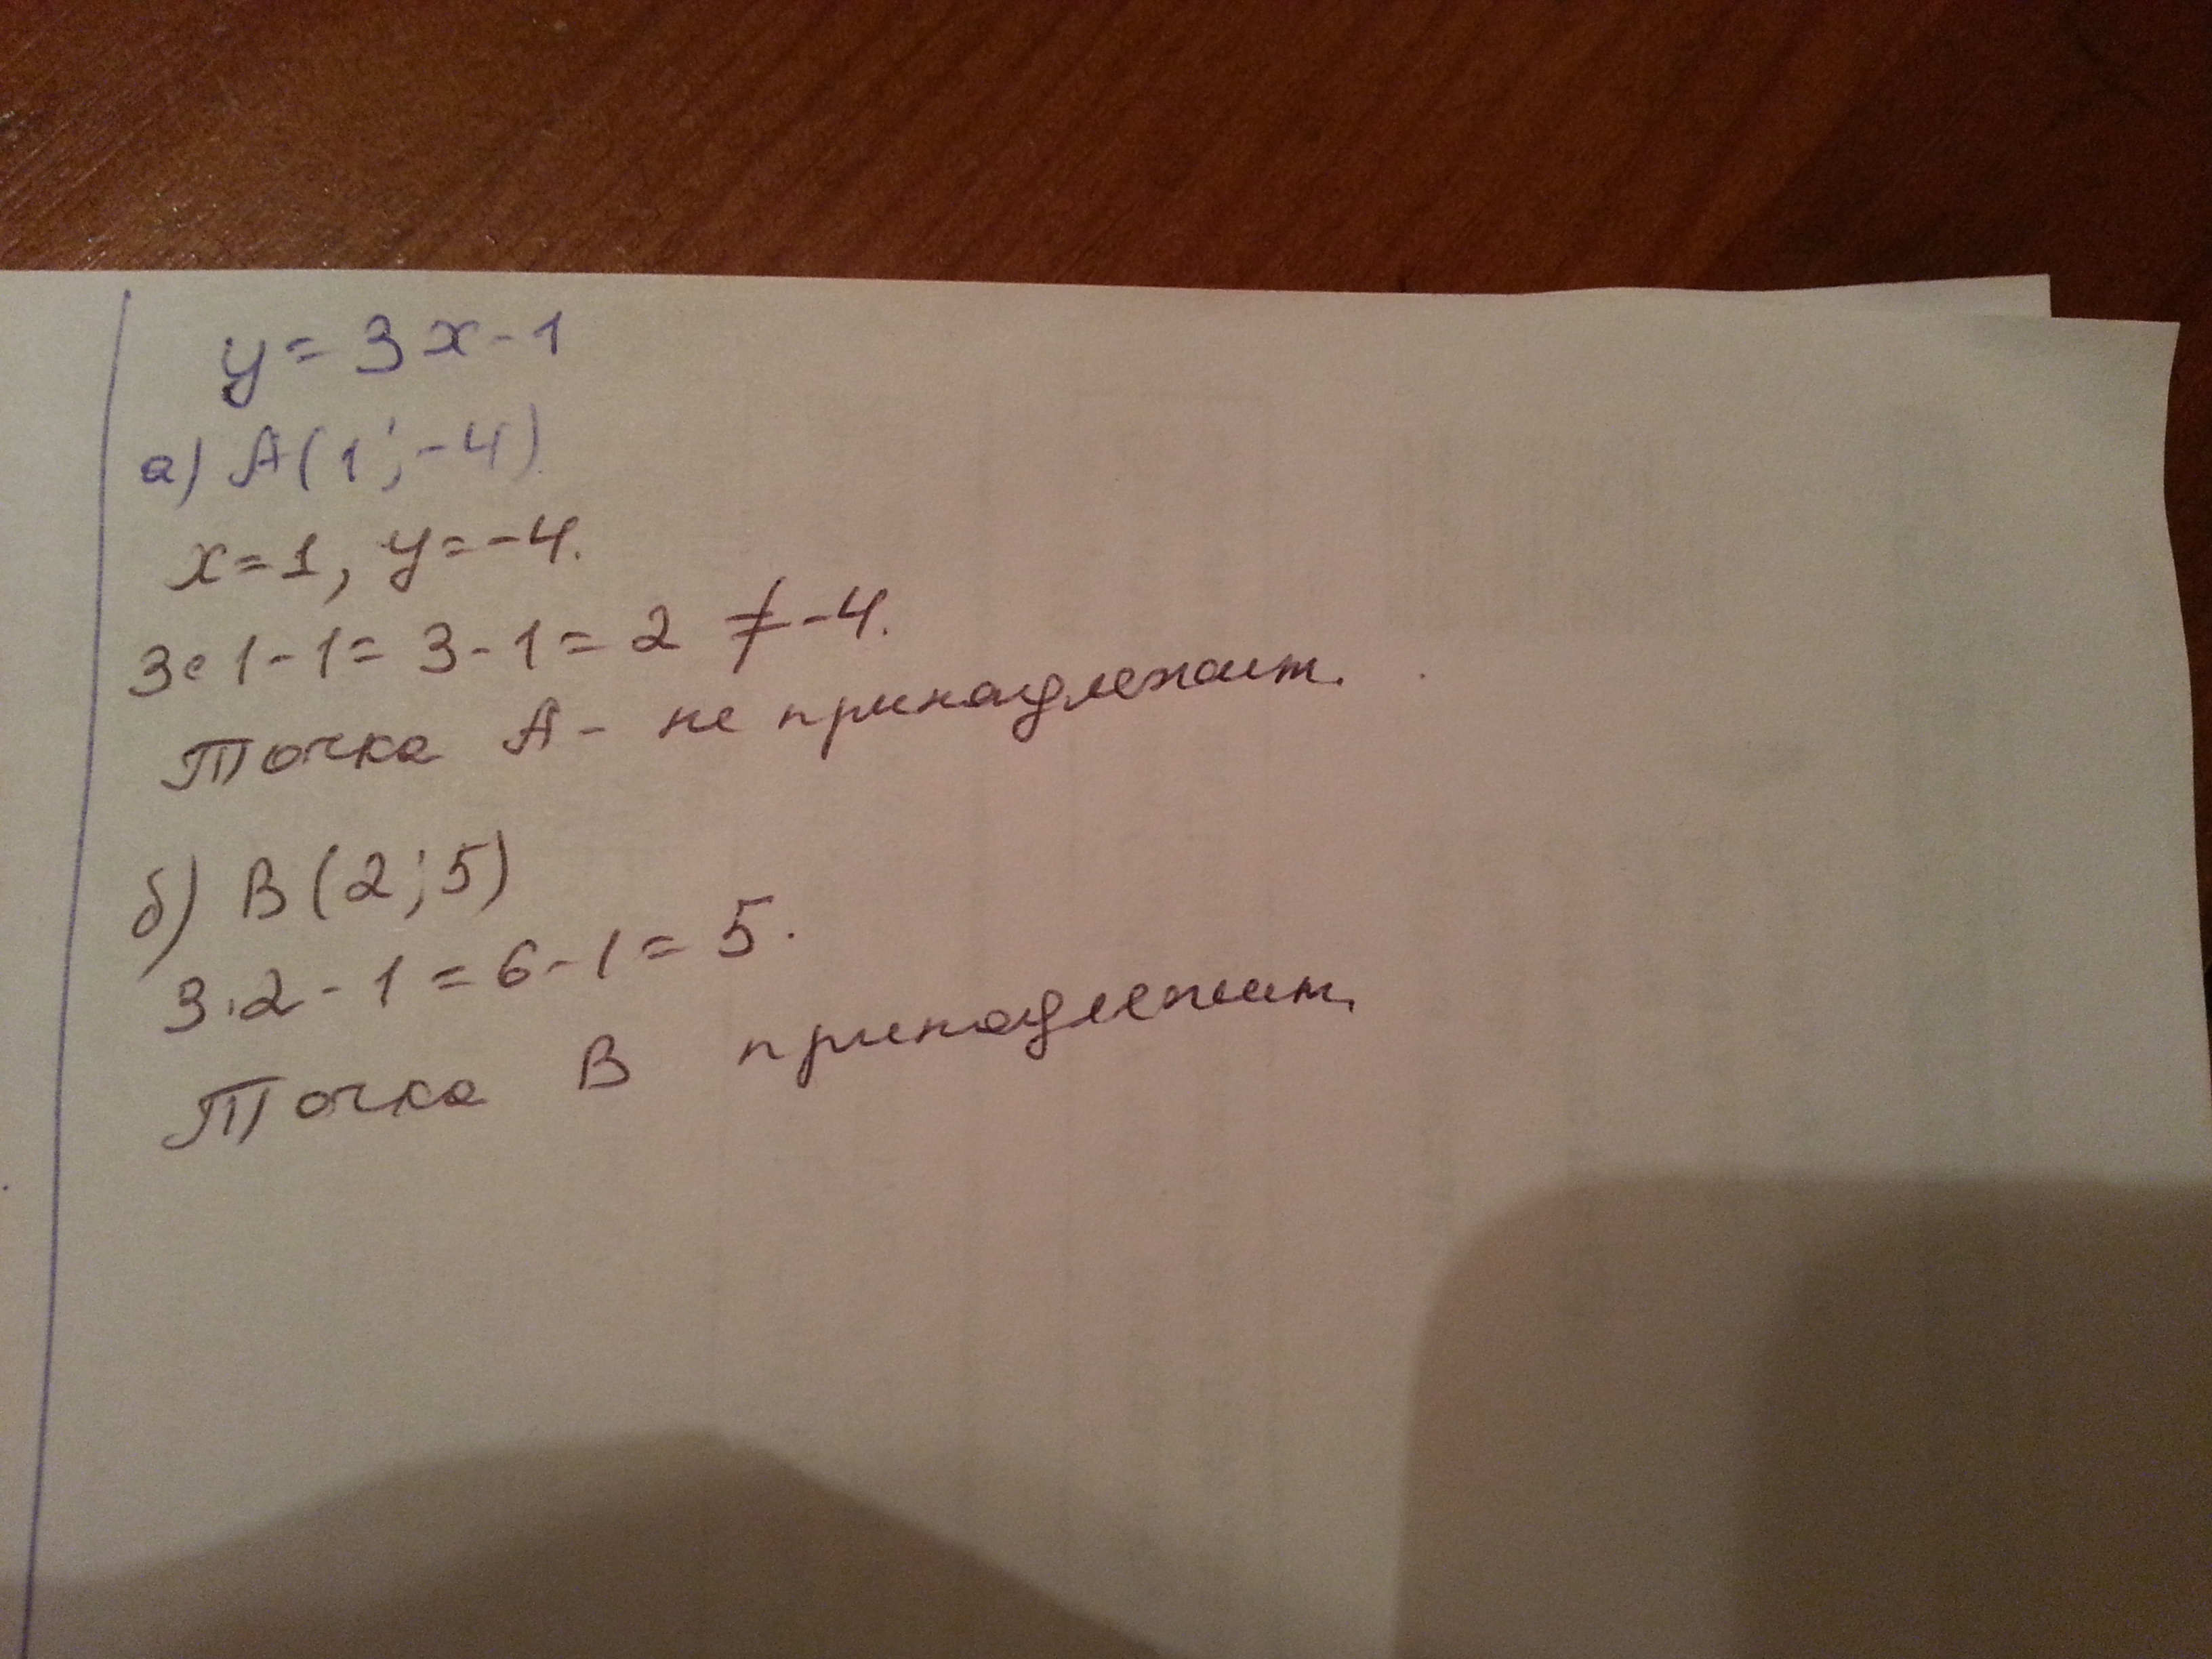 y = 3x - 1
а) A(1; -4)
x = 1, y = -4.
3 • 1 - 1 = 3 - 1 = 2 ≠ -4.
Точка A - не принадлежит.
б) B(2; 5)
3 · 2 - 1 = 6 - 1 = 5.
Точка B принадлежит.